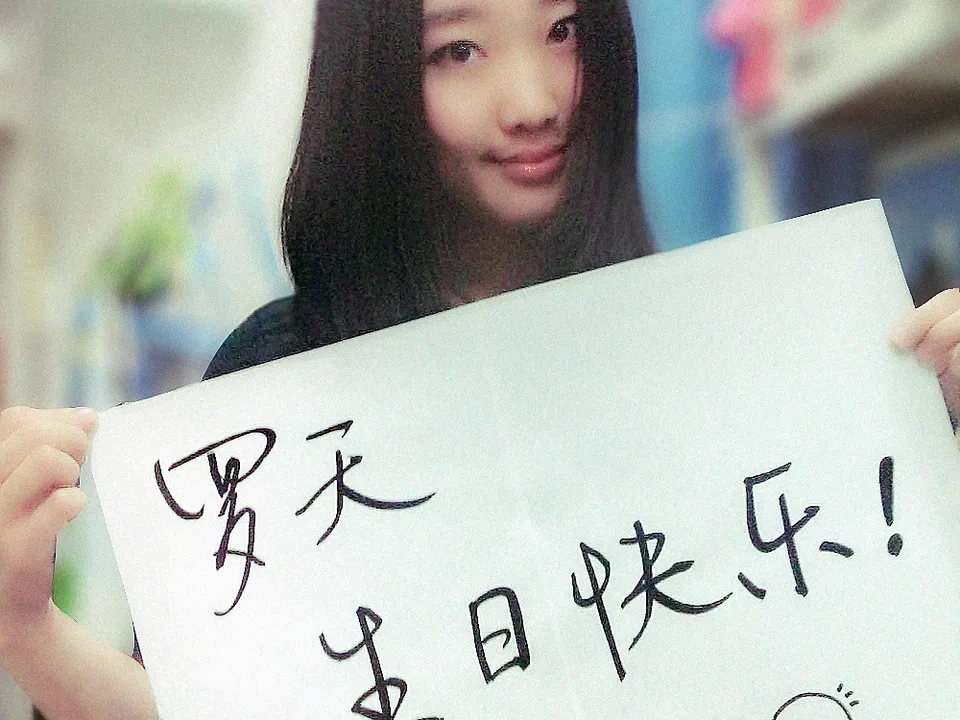 罗天
生日快乐!